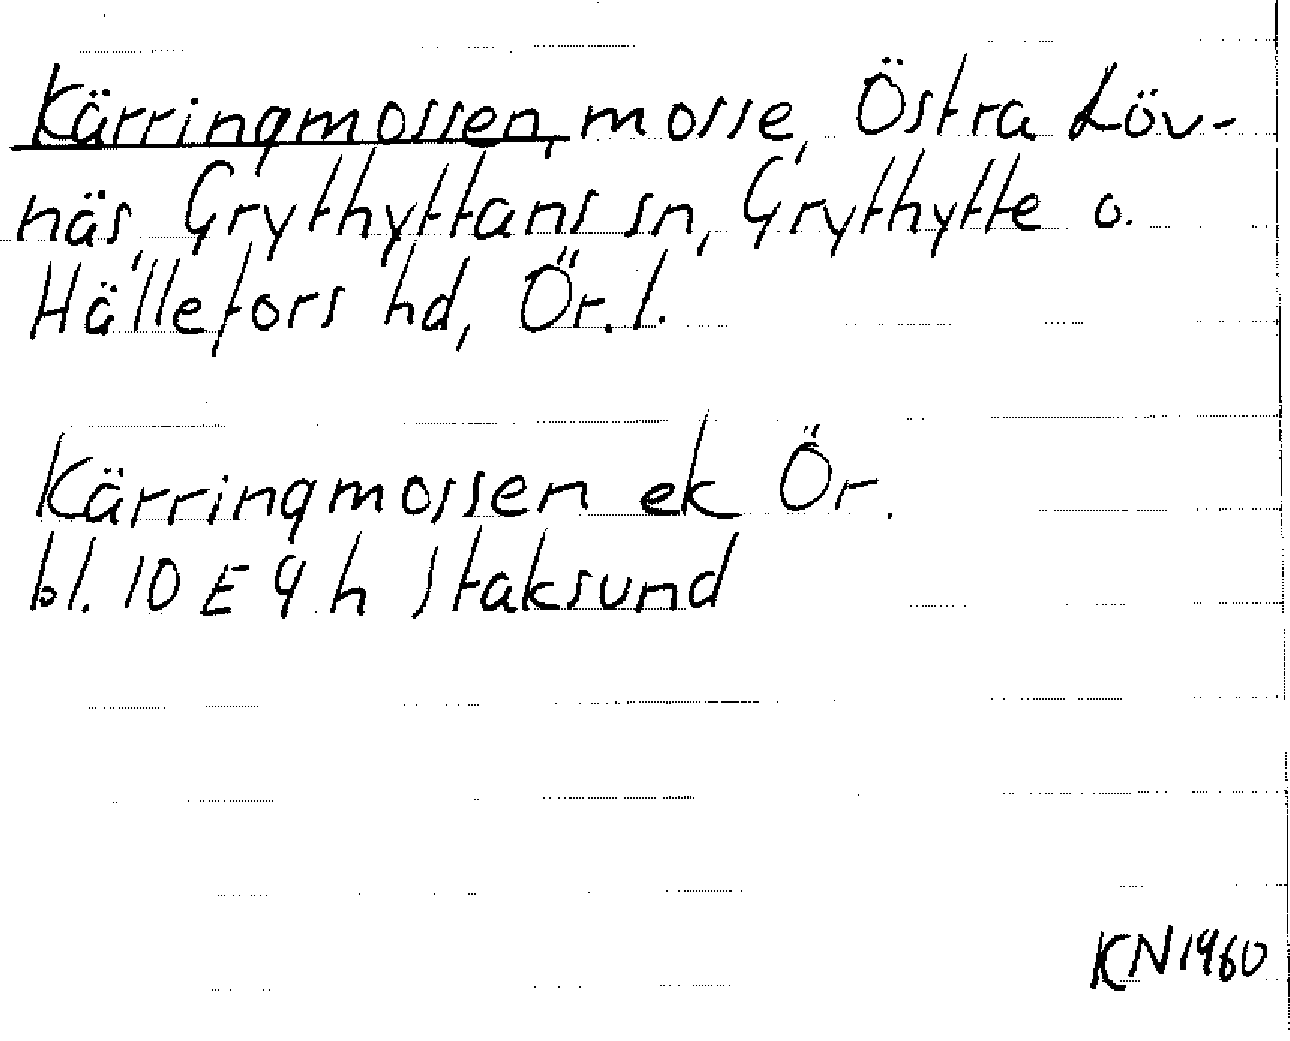 Kärringmossen, mosse, Östra Löv-
näs, Grythyttans sn, Grythytte o.
Hällefors hd, Ör. l.
Kärringmossen ek Ör.
bl. 10 E 9 h Staksund
KN 1960